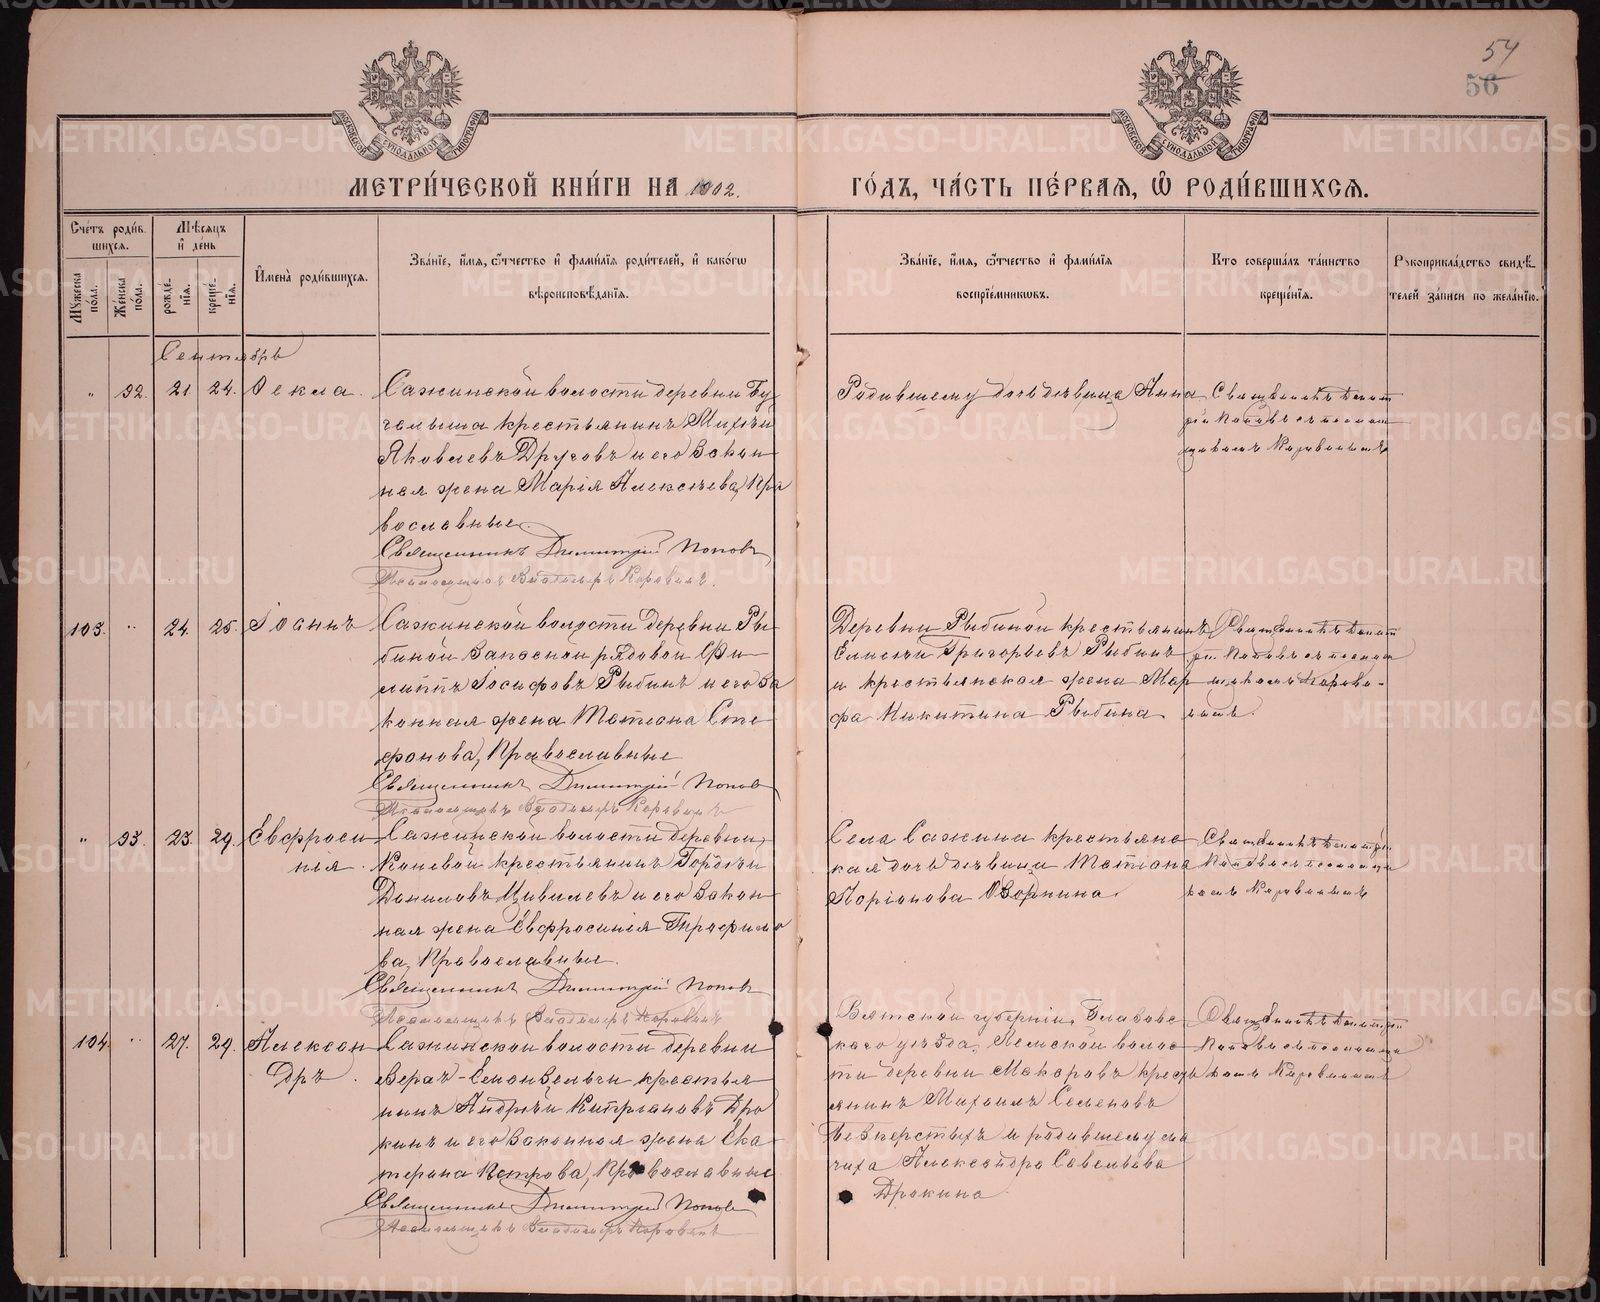 54
56
МЕТРИ́ЧЕСКОЙ КНИ́ГИ НА 1902.
ГО́ДЪ, ЧА́СТЬ ПЕ́РВАЯ, Ѿ РОДИ́ВШИХСѦ.
МОСКОВСКОЙ СѴНОДАЛЬНОЙ ТИПОГРАФІИ
МОСКОВСКОЙ СѴНОДАЛЬНОЙ ТИПОГРАФІИ
Сче́тъ роди́в
шихсѧ.
Мѣ́сѧцъ
и҆ де́нь
Мꙋжеска
пола.
Же́нска
по́ла.
рожде́
нїѧ.
креще́
нїѧ.
И҆мена̀ роди́вшихсѧ.
Зва́нїе, и҆́мѧ, ѻ҆́тчество и҆ фами́лїѧ роди́телей, и҆ како́гѡ
вѣроисповѣ́данїѧ.
Зва́нїе, и҆́мѧ, ѻ҆́тчество и҆ фами́лїѧ
воспрїе́мникѡвъ.
Кто̀ соверша́лъ та́инство
креще́нїѧ.
Рꙋкоприкла́дство свидѣ́
телей за́писи по жела́нїю.
Сентябрь
" 92. 21. 24. Ѳекла.
Сажинской волости деревни Бу
гелыша крестьянинъ
Яковлевъ Друговъ и его закон
ная жена Марія Алексѣева, Пра
вославные.
Священникъ Димитрій Поповъ
Псаломщикъ Владиміръ Коровинъ.
Родившему дочь дѣвица Анна
Священникъ Димит
рій Поповъ съ псалом
щикомъ Коровинымъ
103. " 24. 25. Іоаннъ
Сажинской волости деревни Ры
биной запасной рядовой Фи
липпъ Іосифовъ Рыбинъ и его за
конная жена Татіана Сте
фанова, Православные
Священникъ Димитрій Поповъ
Псаломщикъ Владиміръ Коровинъ
Деревни Рыбиной крестьянинъ
Елисей Григорьевъ Рыбинъ
и крестьянская жена Мар
фа Никитина Рыбина.
Священникъ Димит
рій Поповъ съ псалом
щикомъ Корови-
нымъ.
" 93. 23. 29. Евфроси
нія.
Сажинской волости деревни
Коневой крестьянинъ Гордѣй
Даниловъ Цивилевъ и его закон
ная жена Евфросинія
ва, Православные.
Священникъ Димитрій Поповъ
Псаломщикъ Владиміръ Коровинъ
Села Сажина крестьянс
кая дочь дѣвица Татіана
Ларіонова Озорнина.
Священникъ Димитрій
Поповъ съ псаломщи
комъ Коровинымъ
104. " 27. 29. Алексан
дръ.
Сажинской волости деревни
крестья
нинъ Андрей Кипріановъ Дро
кинъ и его законная жена Ека
терина Петрова, Православные
Священникъ Димитрій Поповъ
Псаломщикъ Владиміръ Коровинъ
Вятской губерніи, Глазовс
каго уѣзда, Лемской волос
ти деревни Макаровъ кресть
янинъ Михаилъ Семеновъ
Безперстыхъ и родившему ма
чиха Александра Савельева
Дрокина.
Священникъ Димитрій
Поповъ съ псаломщи
комъ Коровинымъ
METRIKI.GASO-URAL.RU